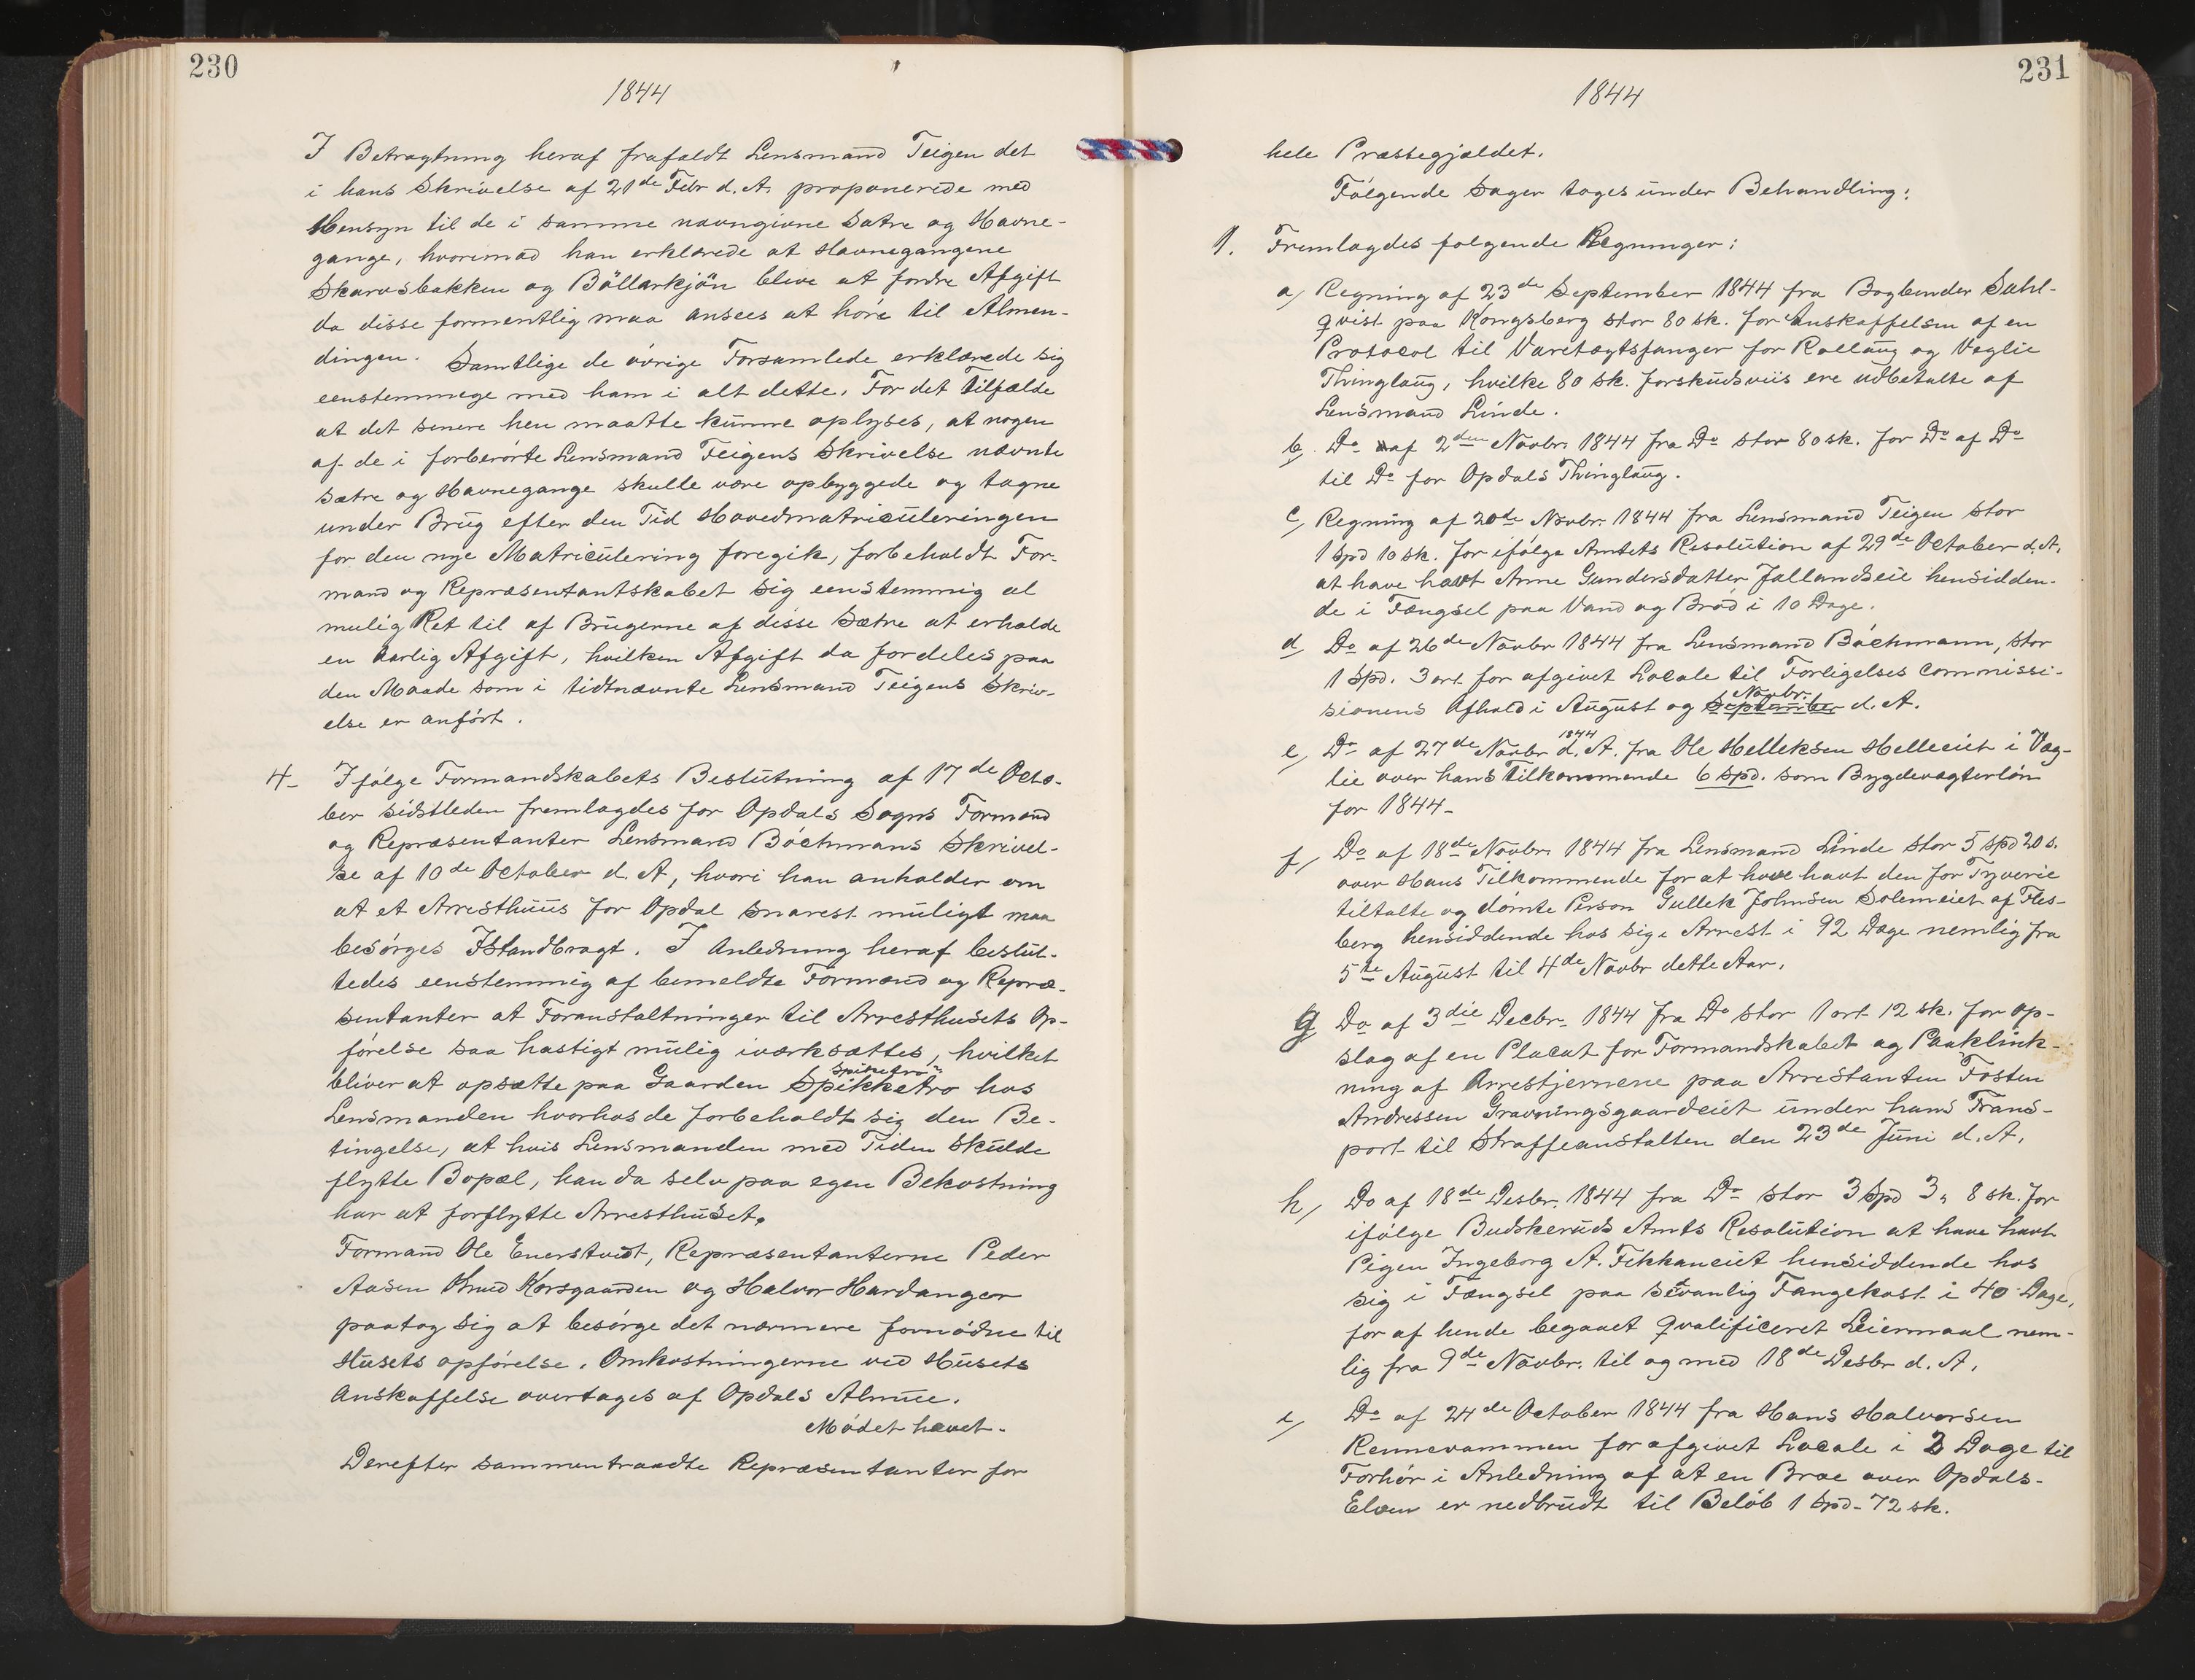 230
1844
I Betragtning heraf frafaldt Lensmand Teigen det
i hans Skrivelse af 21de Febr d. A. proponerede med
Hensyn til de i samme navngivne Sætre og Havne-
gange, hvorimod han erklærede at Havnegangene
Skarvsbakken og Böllarkjön blive at fordre Afgift
da disse formentlig maa ansees at hóre til Almen-
dingen. Samtlige de óvrige Forsamlede erklærede sig
eenstemmege med ham i alt dette. For det Tilfælde
at det senere hen maatte kunne oplyses, at nogen
af de i forberórte Lensmand Teigens Skrivelse nævnte
Sætre og Havnegange skulle være opbyggede og tagne
under Brug efter den Tid Hovedmatriculeringen
for den nye Matriculering foregik, forbeholdt For-
mand og Repræsentantskabet sig eenstemmig al
mulig Ret til af Brugerne af disse Sætre at erholde
en Aarlig Afgift, hvilken Afgift da fordeles paa
den Maade som i tidtnævnte Lensmand Teigens Skriv-
else er anfórt.
4- Ifólge Formandskabets Beslutning af 17de Octo-
ber sidstleden fremlagdes for Opdals Sogns Formænd
og Repræsentanter Lensmand Bóchmans Skrivel-
se af 10de October d. A, hvori han anholder om
at et Arresthuus for Opdal snarest muligt maa
besórges Istandbragt. I Anledning heraf beslut-
tedes eenstemmig af bemeldte Formænd og Repræ-
sentanter at Foranstaltninger til Arresthusets Op-
fórelse saa hastigt mulig iværksættes, hvilket
Spiketro"
bliver at opsætte paa Gaarden Spikketro hos
Lensmanden hvorhos de forbeholdt sig den Be-
tingelse, at hvis Lensmanden med Tiden skulde
flytte Bopæl, han da selv paa egen Bekostning
har at forflytte Arresthuset.
Formand Ole Enerstvedt, Repræsentanterne Peder
Aasen Knud Korsgaarden og Halvor Hardanger
paatog sig at besórge det nærmere fornódne til
Husets opfórelse. Omkostningerne ved Husets
Anskaffelse overtages af Opdals Almue.
Módet hævet.
Derefter sammentraadte Repræsentanter for
231
1844
hele Præstegjældet.
Fólgende Sager toges under Behandling:
1. Fremlagdes folgende Regninger:
a, Regning af 23de September 1844 fra Bogbinder Sahl-
qvist paa Kongsberg stor 80 sk. for Anskaffelsen af en
Protocol til Varetægtsfanger for Rollaug og Veglie
Thinglaug, hvilke 80 sk. forskudsviis ere udbetalte af
Lensmand Linde.
b, Do af 2den Novbr. 1844 fra Do stor 80 sk. for Do af Do
til Do for Opdals Thinglaug.
c, Regning af 20de Novbr. 1844 fra Lensmand Teigen stor
1 Spd 10 sk. for ifólge Amtets Resolution af 29de October d. A.
at have havt Anne Gundersdatter Jallandseie hensidden-
de i Fængsel paa Vand og Bród i 10 Dage.
d, Do af 26de Novbr 1844 fra Lensmand Bóchmann, stor
1 Spd. 3 ort for afgivet Locale til Forligelses Commissi-
Novbr.
sionens Afhold i August og September d. A.
1844
e, Do af 27de Novbr d. A. fra Ole Helleksen Helleeiet i Væg-
lie over hans Tilkommende 6 spd. som Bygdevægterlón
for 1844-
f, Do af 18de Novbr. 1844 fra Lensmand Linde stor 5 spd 20 s.
over Hans Tilkommende for at have havt den for Tyverie
tiltalte og dómte Person Gullek Johnsen Solemeiet af Fles-
berg hensiddende hos sig i Arrest i 92 Dage nemlig fra
5te August til 4de Novbr dette Aar.
g Do af 3die Decbr. 1844 fra Do stor 1 ort 12 sk. for Op-
slag af en Placat for Formandskabet og Paaklink-
ning af Arrestjernene paa Arrestanten Tosten
Andressen Gravningsgaardeiet under hans Trans-
port til Straffeanstalten den 23de Juni d. A.
h, Do af 18de Desbr. 1844 fra Do stor 3 Spd 3 " 8 sk. for
ifólge Budskeruds Amts Resolution at have havt
Pigen Ingeborg A. Fekkaneiet hensiddende hos
sig i Fængsel paa sedvanlig Fangekost i 40 Dage,
for af hende begaaet qvalificeret Leiermaal nem-
lig fra 9de Novbr. til og med 18de Desbr d. A.
i, Do af 24de October 1844 fra Hans Halvorsen
Rennevammen for afgivet Locale i 2 Dage til
Forhór i Anledning af at en Broe over Opdals-
Elven er nedbrudt til Belób 1 Spd- 72 sk.